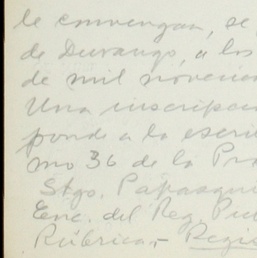 le convengan, se
de Durango, a los
de mil novecien
Una inscripci
ponde a la escri
mo 36 de la Pro
Stgo. Papasqui
Enc. del Reg. Pu
Rúbrica.- Regis